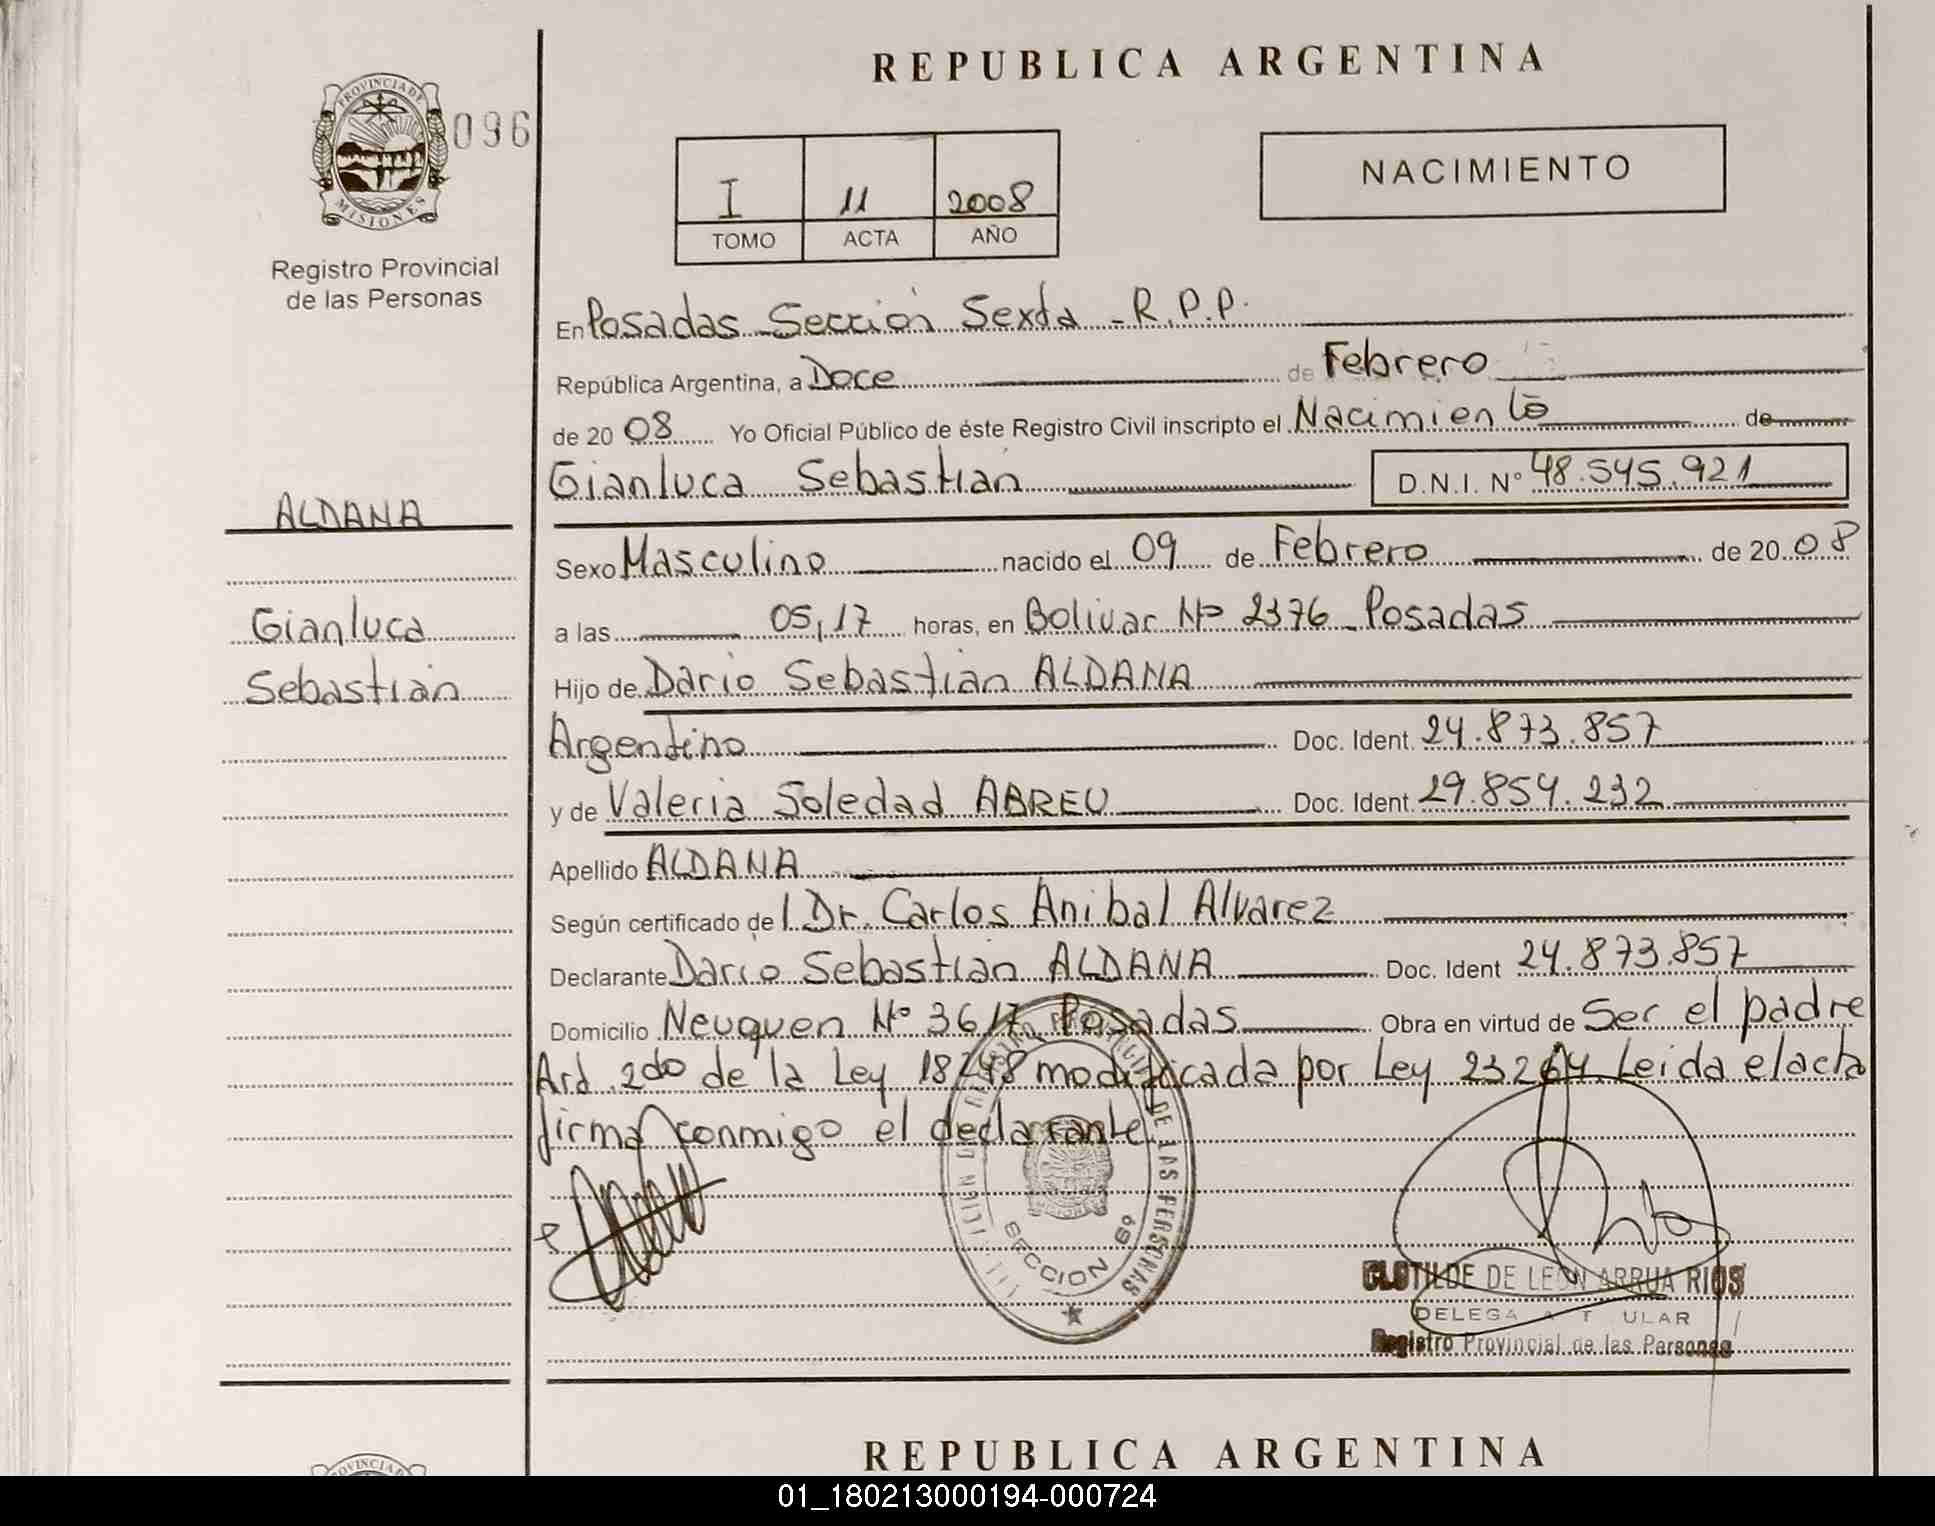 REPUBLICA ARGENTINA
PROVINCIA DE
MISIONES
096
Registro Provincial
de las Personas
I 11 2008
TOMO ACTA AÑO
NACIMIENTO
En Posadas Sección Sexta - R.P.P.
República Argentina, a Doce de Febrero
de 20 08 Yo Oficial Público de éste Registro Civil inscripto el Nacimiento de
Gianluca Sebastián D.N.I. Nº 48.545.921
ALDANA
Gianluca
Sebastián
Sexo Masculino nacido el 09 de Febrero de 20 08
a las 05,17 horas, en Bolivar Nº 2376 - Posadas
Hijo de Dario Sebastián ALDANA
Argentino Doc. Ident. 24.873.857
y de Valeria Soledad ABREU Doc. Ident. 29.854.232
Apellido ALDANA
Según certificado de l Dr. Carlos Anibal Alvarez
Declarante Dario Sebastián ALDANA Doc. Ident 24.873.857
Domicilio Neuquen Nº 3617 Posadas Obra en virtud de Ser el padre
Art. 2do de la Ley 18248 modificada por Ley 23264. Leida el acta
firma conmigo el declarante
DE LAS PERSONAS
SECCION 6º
CLOTILDE DE LEON ARRUA RIOS
Registro Provincial de las Personas
REPUBLICA ARGENTINA
01_180213000194-000724